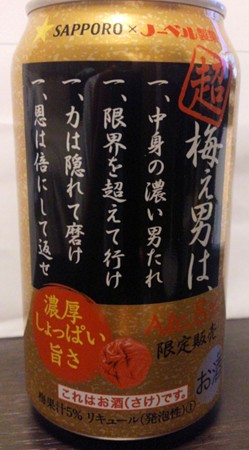 SAPPORO × ノーベル製菓
超梅ぇ男は、
一、中身の濃い男たれ
一、限界を超えて行け
一、力は隠れて磨け
一、恩は倍にして返せ
濃厚
しょっぱい
旨さ
限定販売
お酒
これはお酒(さけ)です。
梅果汁5% リキュール(発泡性)①